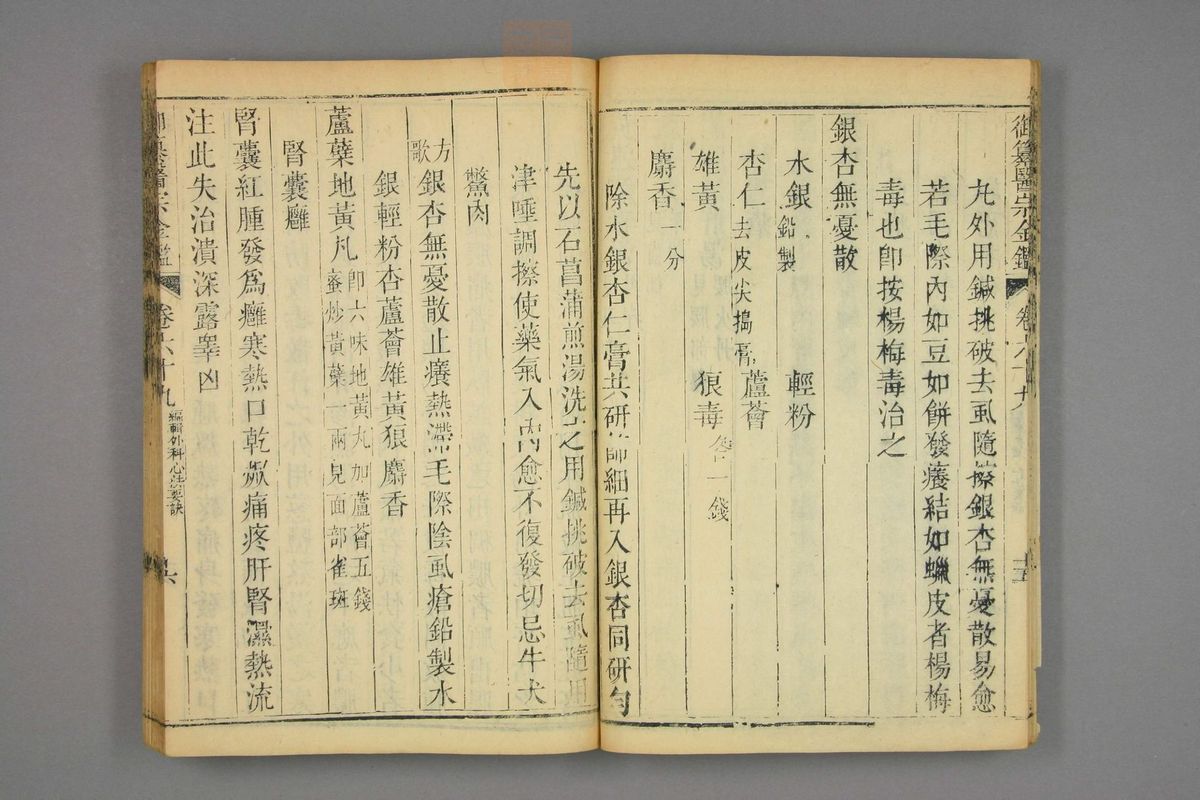 御纂醫宗金鑑 卷六十九 十五
丸外用鍼挑破去虱隨擦銀杏無憂散易愈
若毛際內如豆如餅發癢結如蠟皮者楊梅
毒也卽按楊梅毒治之
銀杏無憂散
水銀鉛製 輕粉
杏仁去皮尖搗膏 蘆薈
雄黃 狼毒各一錢
麝香一分
除水銀杏仁膏共研篩細再入銀杏同研勻
先以石菖蒲煎湯洗之用鍼挑破去虱隨用
津唾調擦使藥氣入內愈不復發切忌牛犬
鱉肉
方歌 銀杏無憂散止癢熱滯毛際陰虱瘡鉛製水
銀輕粉杏蘆薈雄黃狼麝香
蘆薈地黃丸卽六味地黃丸加蘆薈五錢
蜜炒黃蘗一兩見面部雀斑
腎囊癰
腎囊紅腫發爲癰寒熱口乾焮痛疼肝腎濕熱流
注此失治潰深露睾凶
醫宗金鑑 卷六十九 編輯外科心法要訣 六